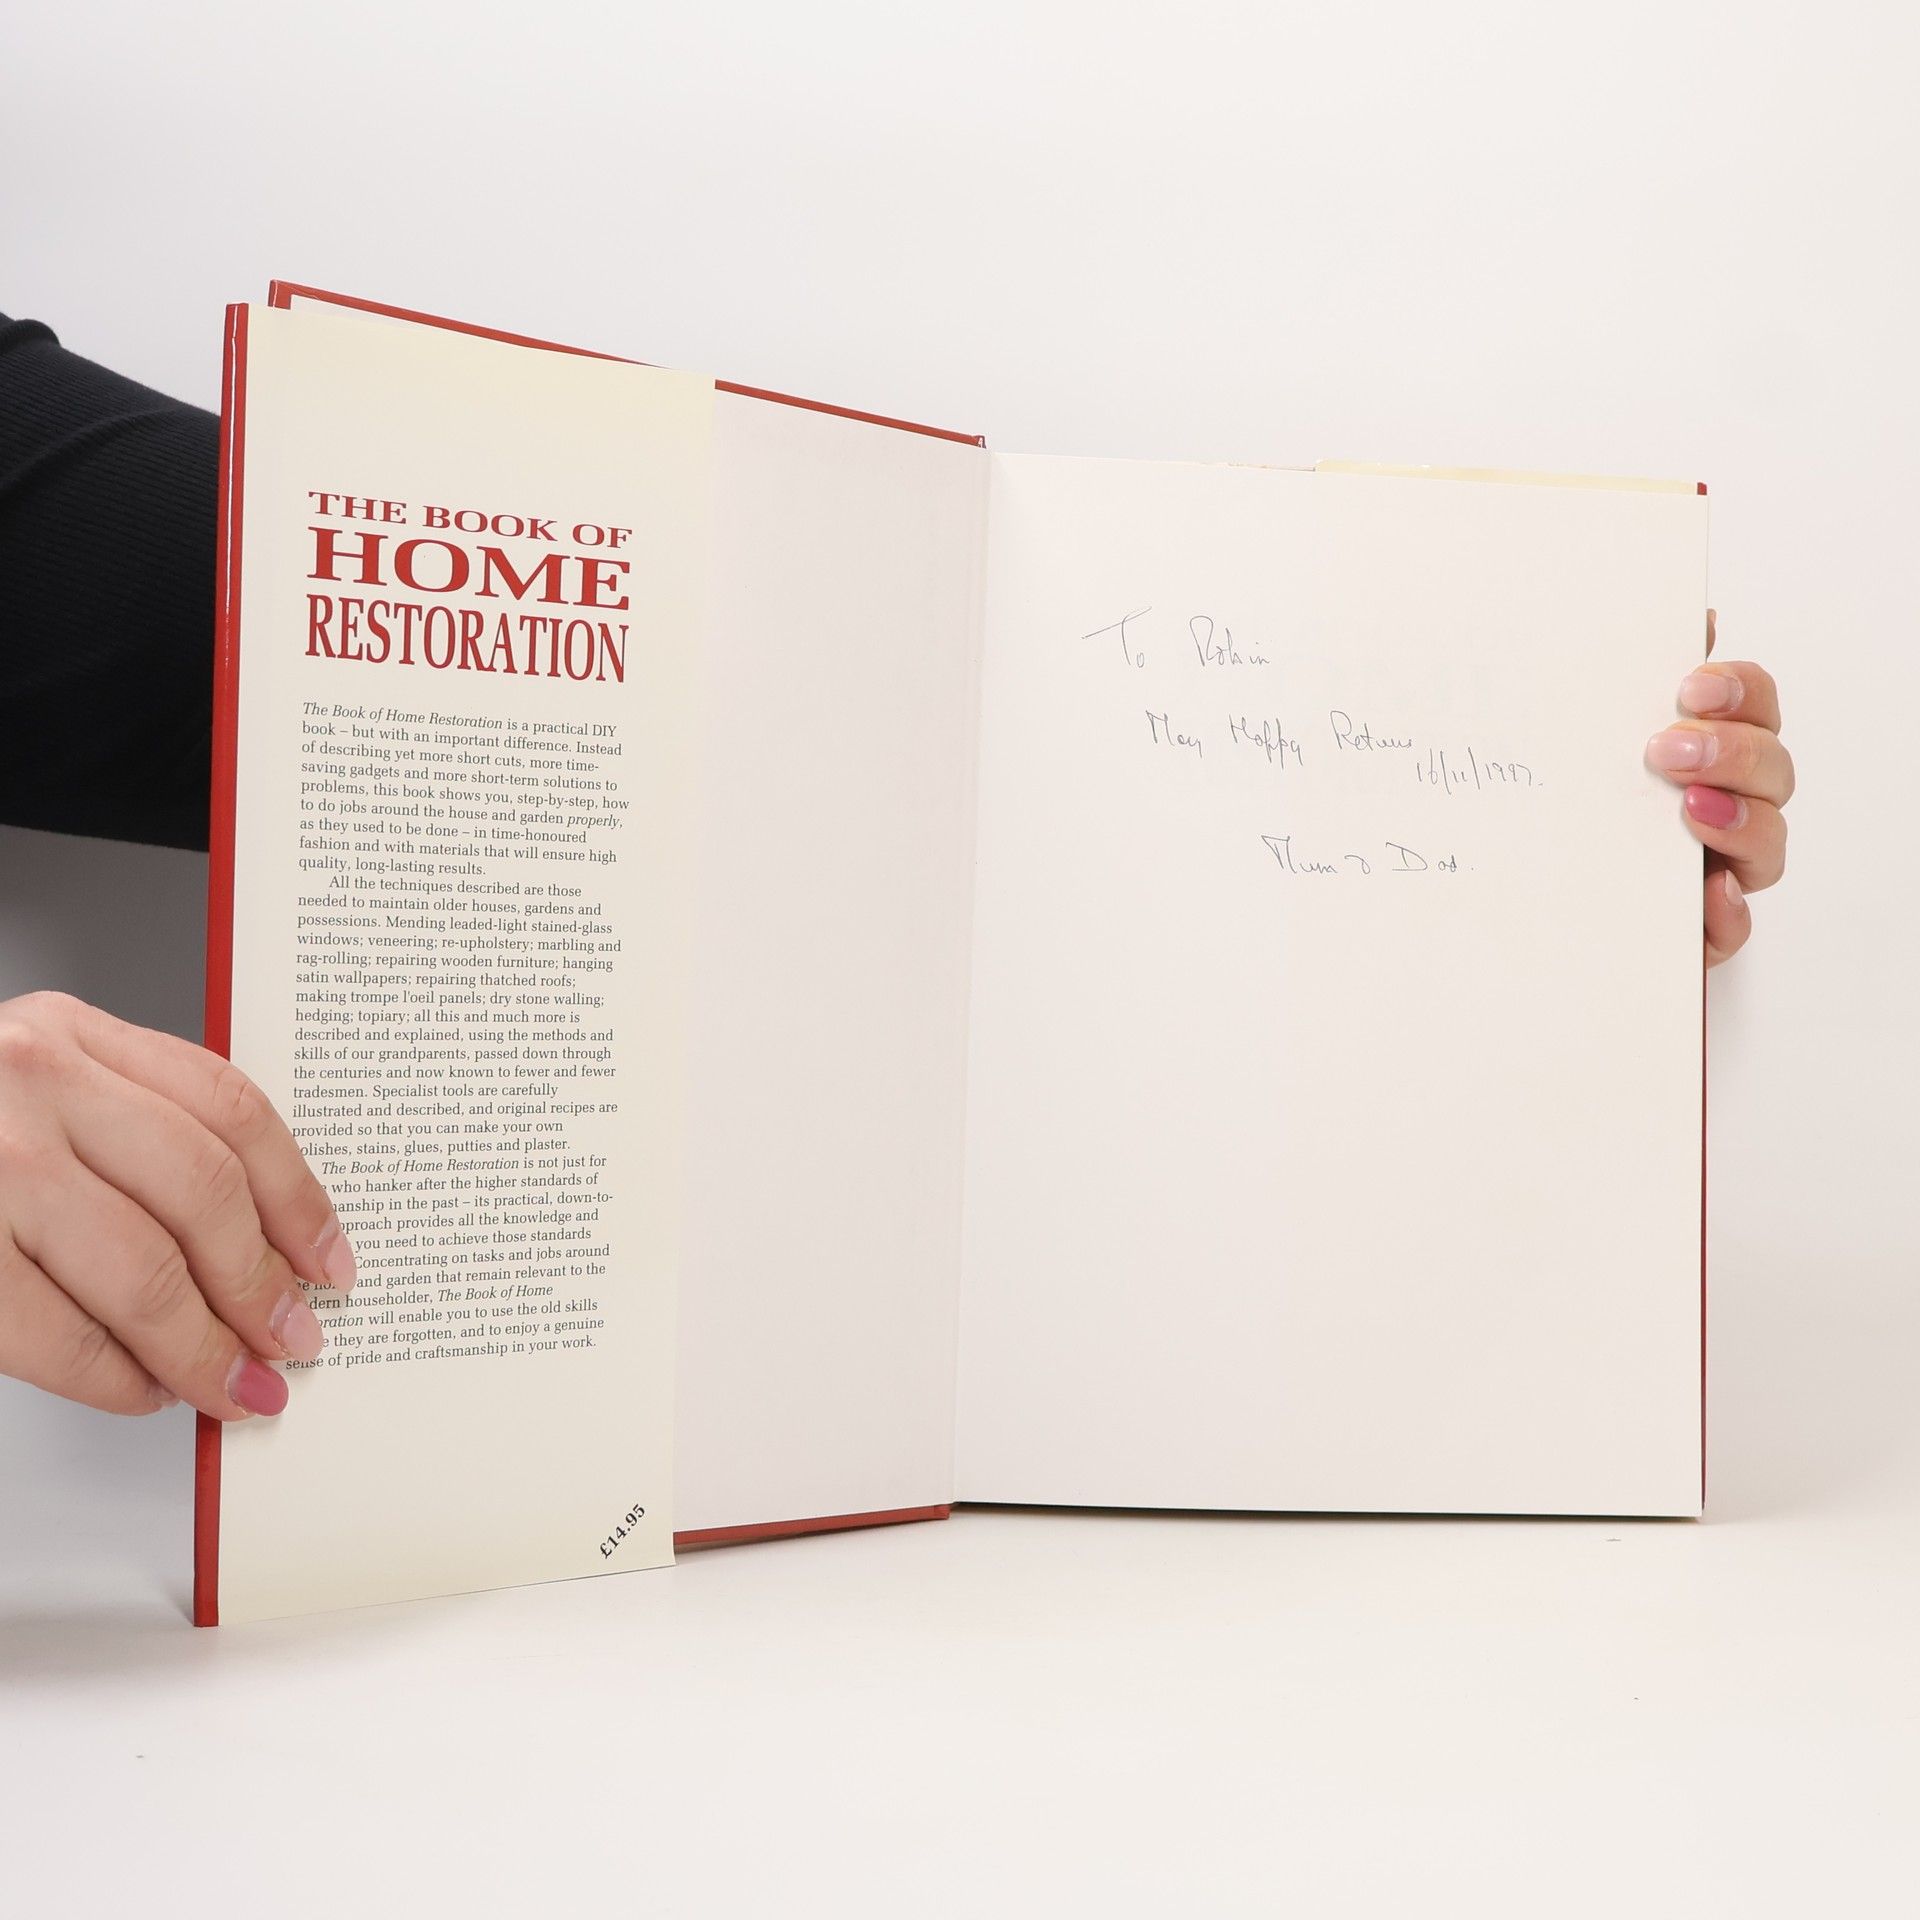 THE BOOK OF
HOME
RESTORATION
The Book of Home Restoration is a practical DIY
book – but with an important difference. Instead
of describing yet more short cuts, more time-
saving gadgets and more short-term solutions to
problems, this book shows you, step-by-step, how
to do jobs around the house and garden properly,
as they used to be done – in time-honoured
fashion and with materials that will ensure high
quality, long-lasting results.
All the techniques described are those
needed to maintain older houses, gardens and
possessions. Mending leaded-light stained-glass
windows; veneering; re-upholstery; marbling and
rag-rolling; repairing wooden furniture; hanging
satin wallpapers; repairing thatched roofs;
making trompe l'oeil panels; dry stone walling;
hedging; topiary; all this and much more is
described and explained, using the methods and
skills of our grandparents, passed down through
the centuries and now known to fewer and fewer
tradesmen. Specialist tools are carefully
illustrated and described, and original recipes are
provided so that you can make your own
olishes, stains, glues, putties and plaster.
The Book of Home Restoration is not just for
who hanker after the higher standards of
manship in the past – its practical, down-to-
pproach provides all the knowledge and
you need to achieve those standards
Concentrating on tasks and jobs around
and garden that remain relevant to the
dern householder, The Book of Home
oration will enable you to use the old skills
e they are forgotten, and to enjoy a genuine
sense of pride and craftsmanship in your work.
£14.95
To Robin
Many Happy Returns
16/11/1997.
Mum & Dad.